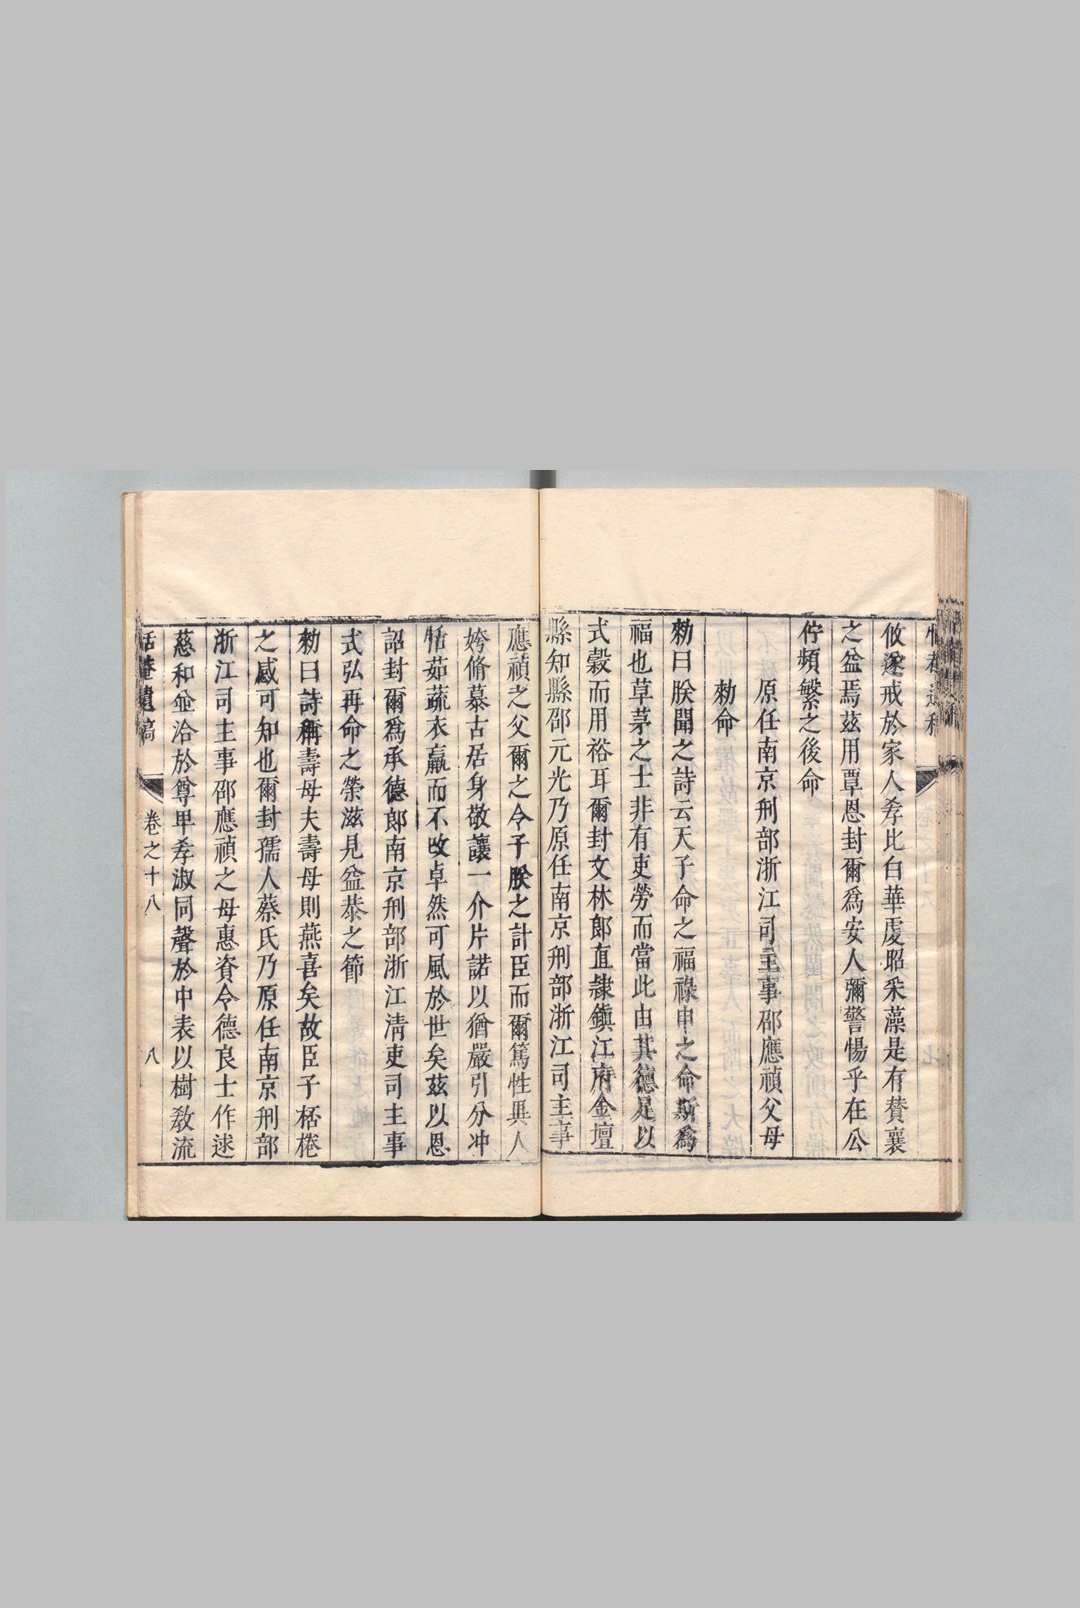 攸遂戒於家人孝比白華虔昭采藻是有贊襄
之益焉茲用覃恩封爾爲安人彌警惕乎在公
佇頻繁之後命
原任南京刑部浙江司主事邵應禎父母
勅命
勅曰朕聞之詩云天子命之福祿申之命斯爲
福也草茅之士非有吏勞而當此由其德足以
式穀而用裕耳爾封文林郎直隸鎮江府金壇
縣知縣邵元光乃原任南京刑部浙江司主事
應禎之父爾之令子朕之計臣而爾篤性異人
姱脩慕古居身敬讓一介片諾以猶嚴引分冲
恬茹蔬衣羸而不改卓然可風於世矣茲以恩
詔封爾爲承德郎南京刑部浙江清吏司主事
式弘再命之榮滋見益恭之節
勅曰詩稱壽母夫壽母則燕喜矣故臣子栝棬
之感可知也爾封孺人蔡氏乃原任南京刑部
浙江司主事邵應禎之母惠資令德良士作逑
慈和並洽於尊甲孝淑同聲於中表以樹教流
恬菴遺稿 卷之十八 八